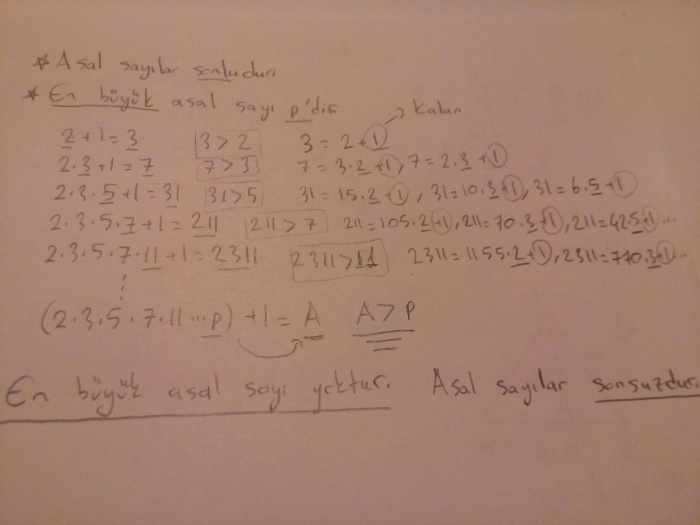 * Asal sayılar sonludur.
* En büyük asal sayı p'dir
→ Kalan
2+1=3 3>2 3=2+1
2.3+1=7 7>3 7=3.2+1, 7=2.3+1
2.3.5+1=31 31>5 31=15.2+1, 31=10.3+1, 31=6.5+1
2.3.5.7+1=211 211>7 211=105.2+1, 211=70.3+1, 211=42.5+1...
2.3.5.7.11+1=2311 2311>11 2311=1155.2+1, 2311=770.3+1...
(2.3.5.7.11...p)+1=A A>p
En büyük asal sayı yoktur. Asal sayılar sonsuzdur.